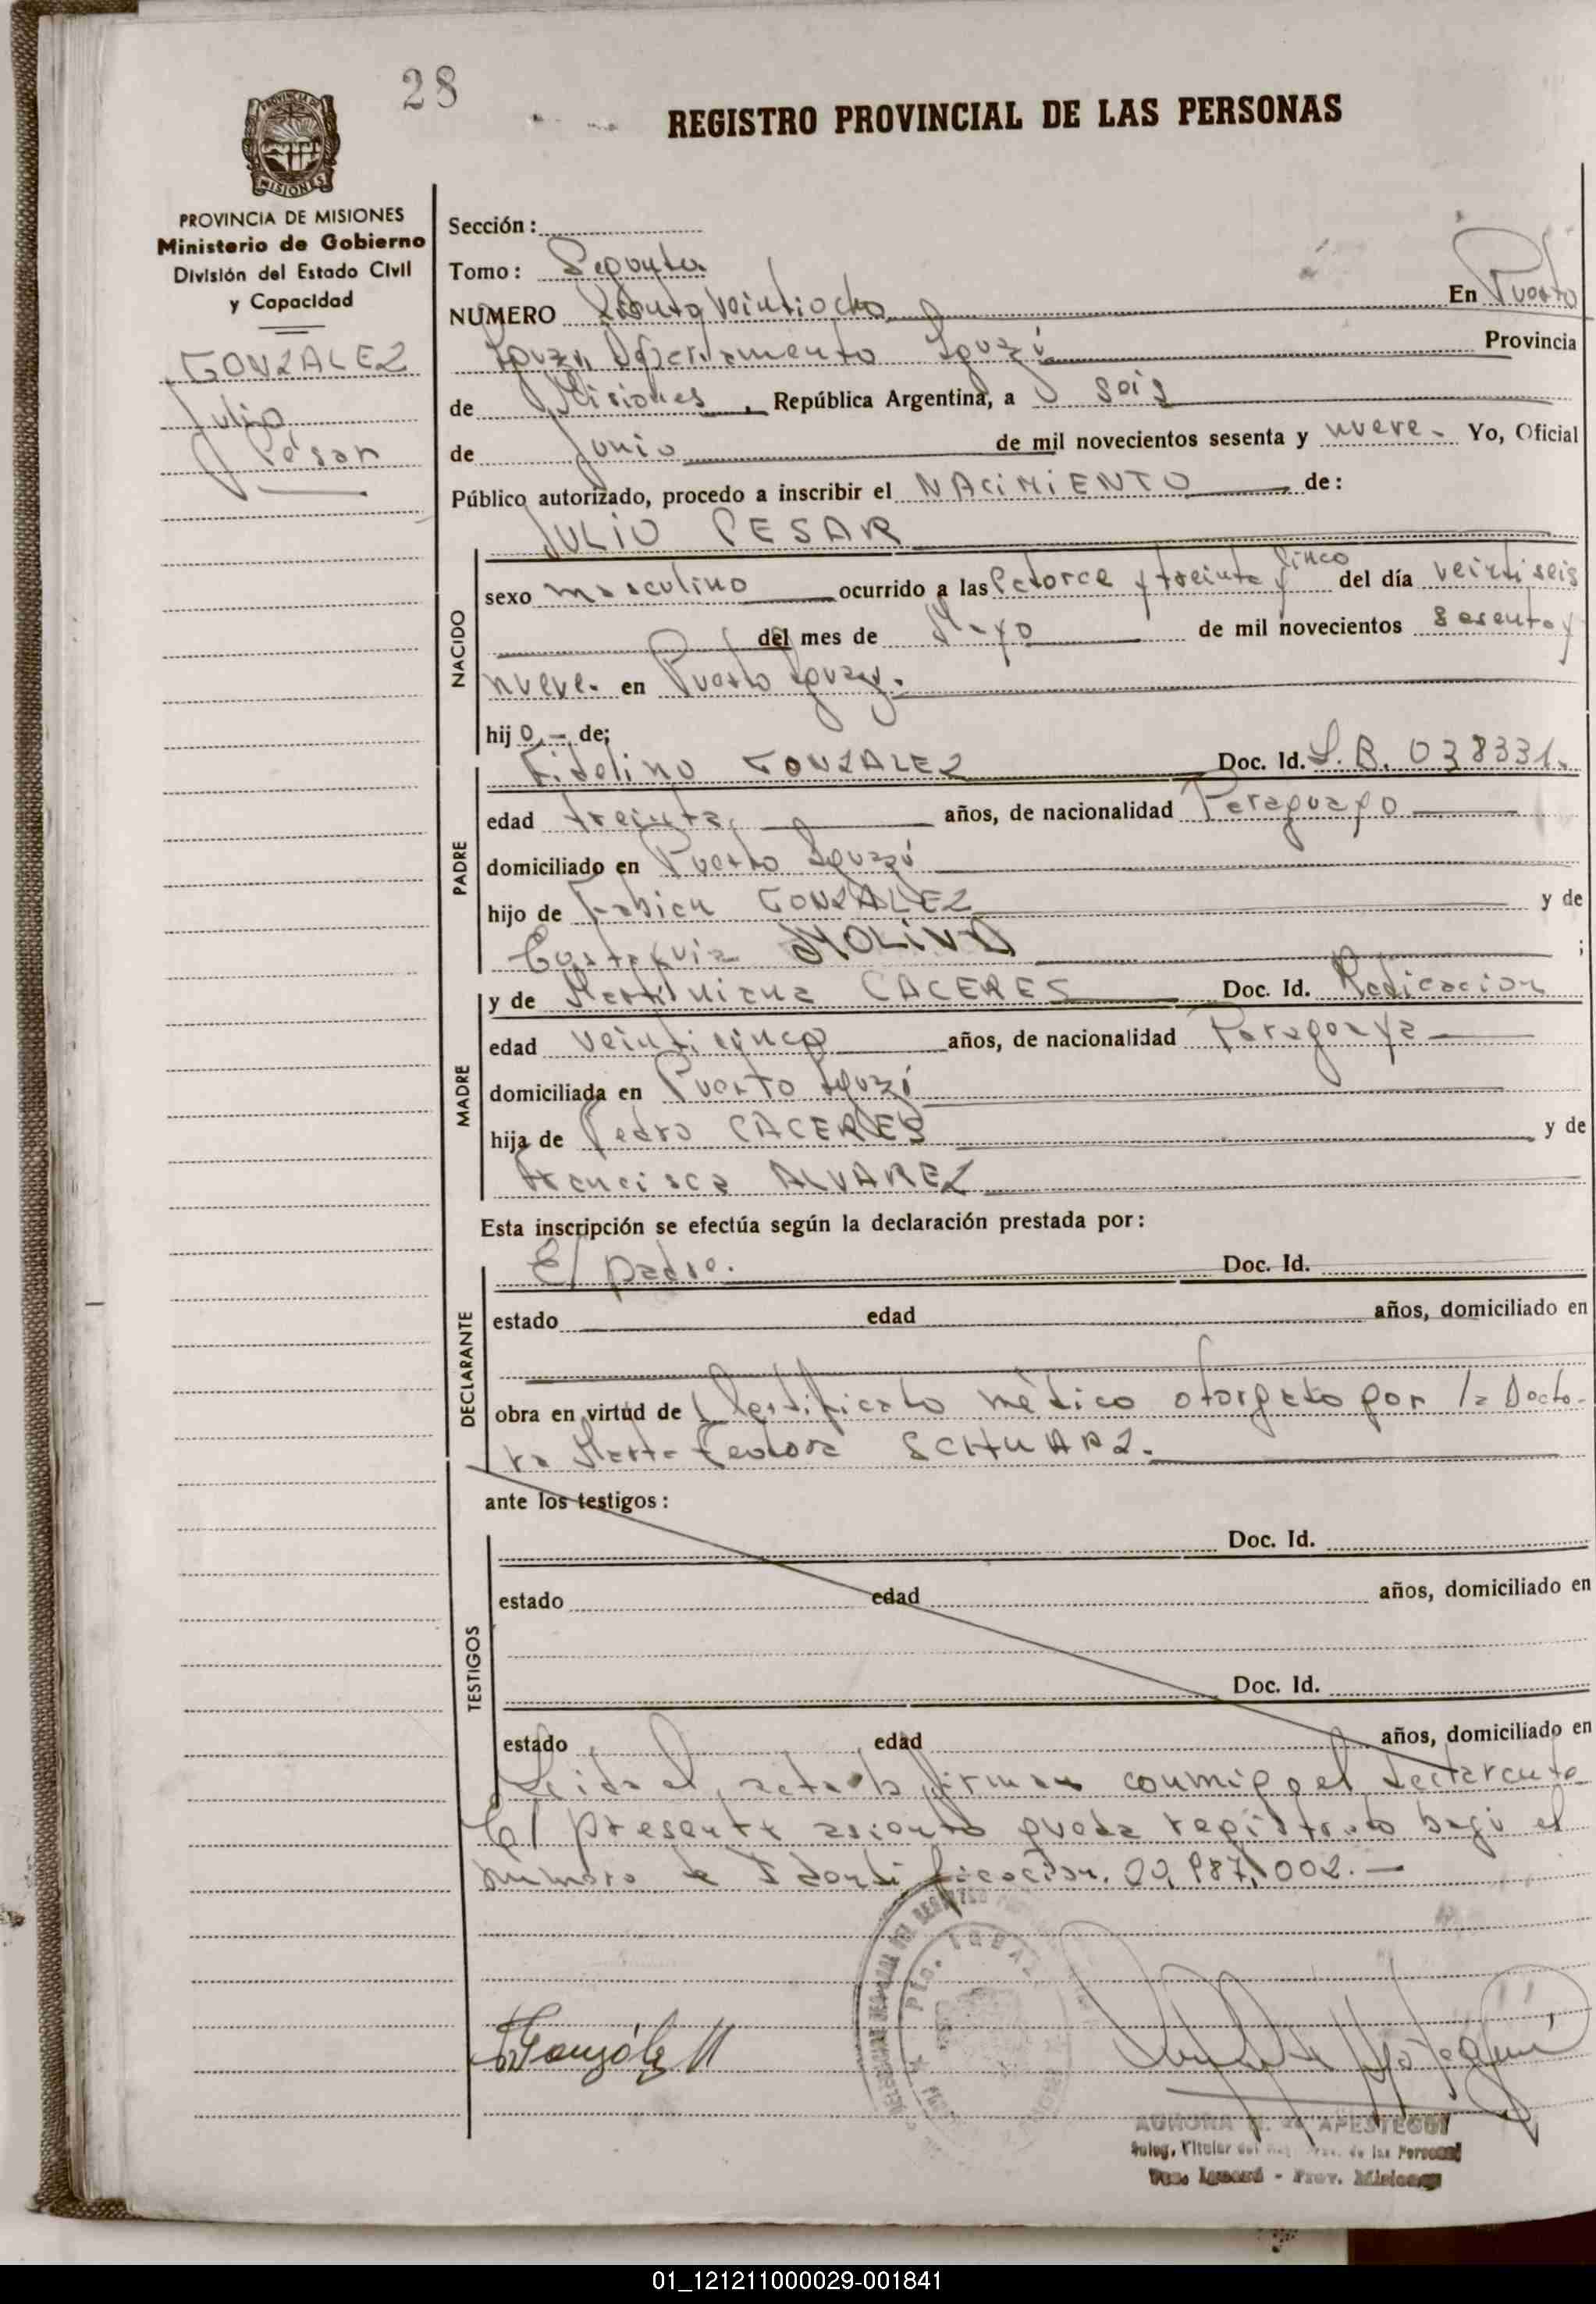 28
REGISTRO PROVINCIAL DE LAS PERSONAS
PROVINCIA DE MISIONES
MISIONES
PROVINCIA DE MISIONES
Ministerio de Gobierno
División del Estado Civil
y Capacidad
GONZALEZ
Julio
César
Sección:
Tomo: Segundo
NUMERO Ciento veintiocho En Puerto
Iguazú Departamento Iguazú Provincia
de Misiones, República Argentina, a seis
de Junio de mil novecientos sesenta y nueve - Yo, Oficial
Público autorizado, procedo a inscribir el NACIMIENTO de:
JULIO CESAR
NACIDO
sexo masculino ocurrido a las Catorce y treinta y cinco del día veintiseis
del mes de Mayo de mil novecientos sesenta y
nueve. en Puerto Iguazú.
hij o.- de;
PADRE
Fidelino GONZALEZ Doc. Id. L.B. 038331.
edad treinta años, de nacionalidad Paraguayo
domiciliado en Puerto Iguazú
hijo de Fabian GONZALEZ y de
MOLINA ;
MADRE
y de Martiniana CACERES Doc. Id. Radicacion
edad veinticinco años, de nacionalidad Paraguaya
domiciliada en Puerto Iguazú
hija de Pedro CACERES y de
Francisca ALVAREZ
Esta inscripción se efectúa según la declaración prestada por:
DECLARANTE
El padre. Doc. Id.
estado edad años, domiciliado en
obra en virtud de Certificado médico otorgado por la Docto-
ra Marta Teodora SCHWARZ.
ante los testigos:
TESTIGOS
Doc. Id.
estado edad años, domiciliado en
Doc. Id.
estado edad años, domiciliado en
Leida el acta la firman conmigo el declarante
El presente asiento queda registrado bajo el
numero de Identificacion. 20.987.002.-
González M
AURORA M. de APESTEGUI
Titular del de las Personas
Pto. Iguazú - Prov. Misiones
01_121211000029-001841